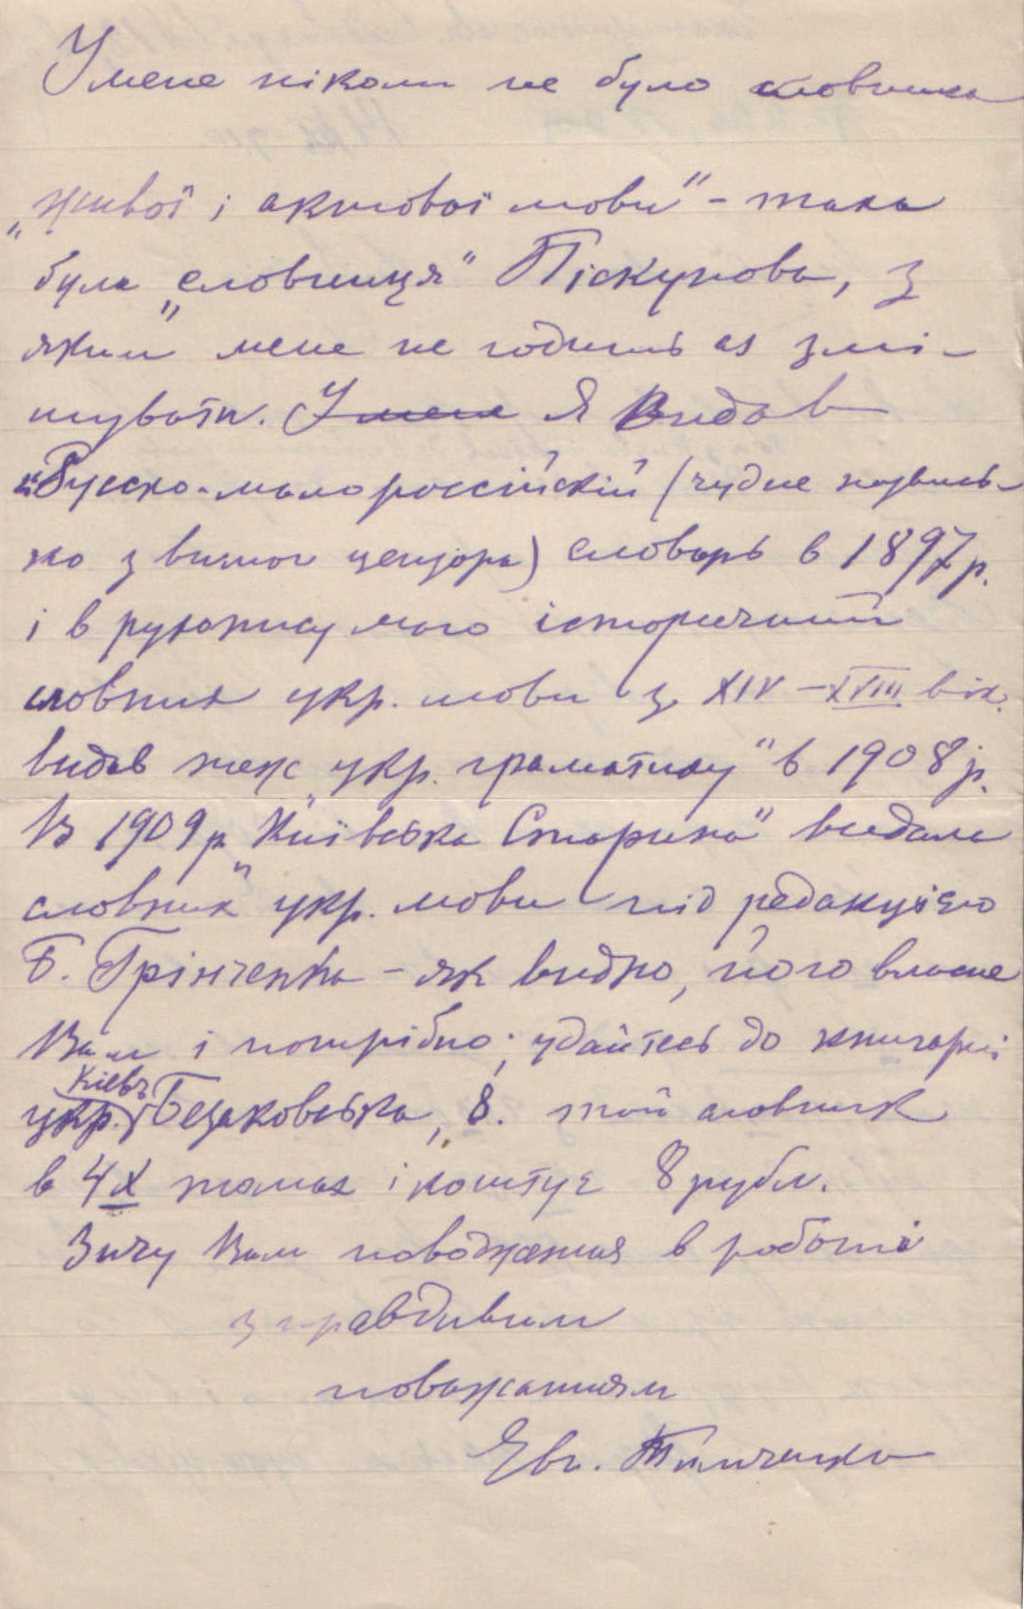 У мене ніколи не було словника
„живої і актової мови" – така
була „словниця" Піскунова, з
яким мене не годить ся змі-
шувати. У мене Я видав
„Русско-малороссійскій (чудне назвись-
ко з вимог цензора) словарь в 1897 р.
і в рукопису маю історичний
словник укр. мови з XIV – XVIII вік.
видав теж „укр. граматику" в 1908 р.
В 1909 р. „Київська Старина" видала
словник укр. мови під редакцією
Б. Грінченка – як видко, його власне
Вам і потрібно; удайтесь до книгарні
Кіевъ
укр. Безаковська, 8. той словник
в 4х томах і коштує 8 рубл.
Зичу Вам поводження в роботі
з правдивим
поважанням
Евг. Тимченко